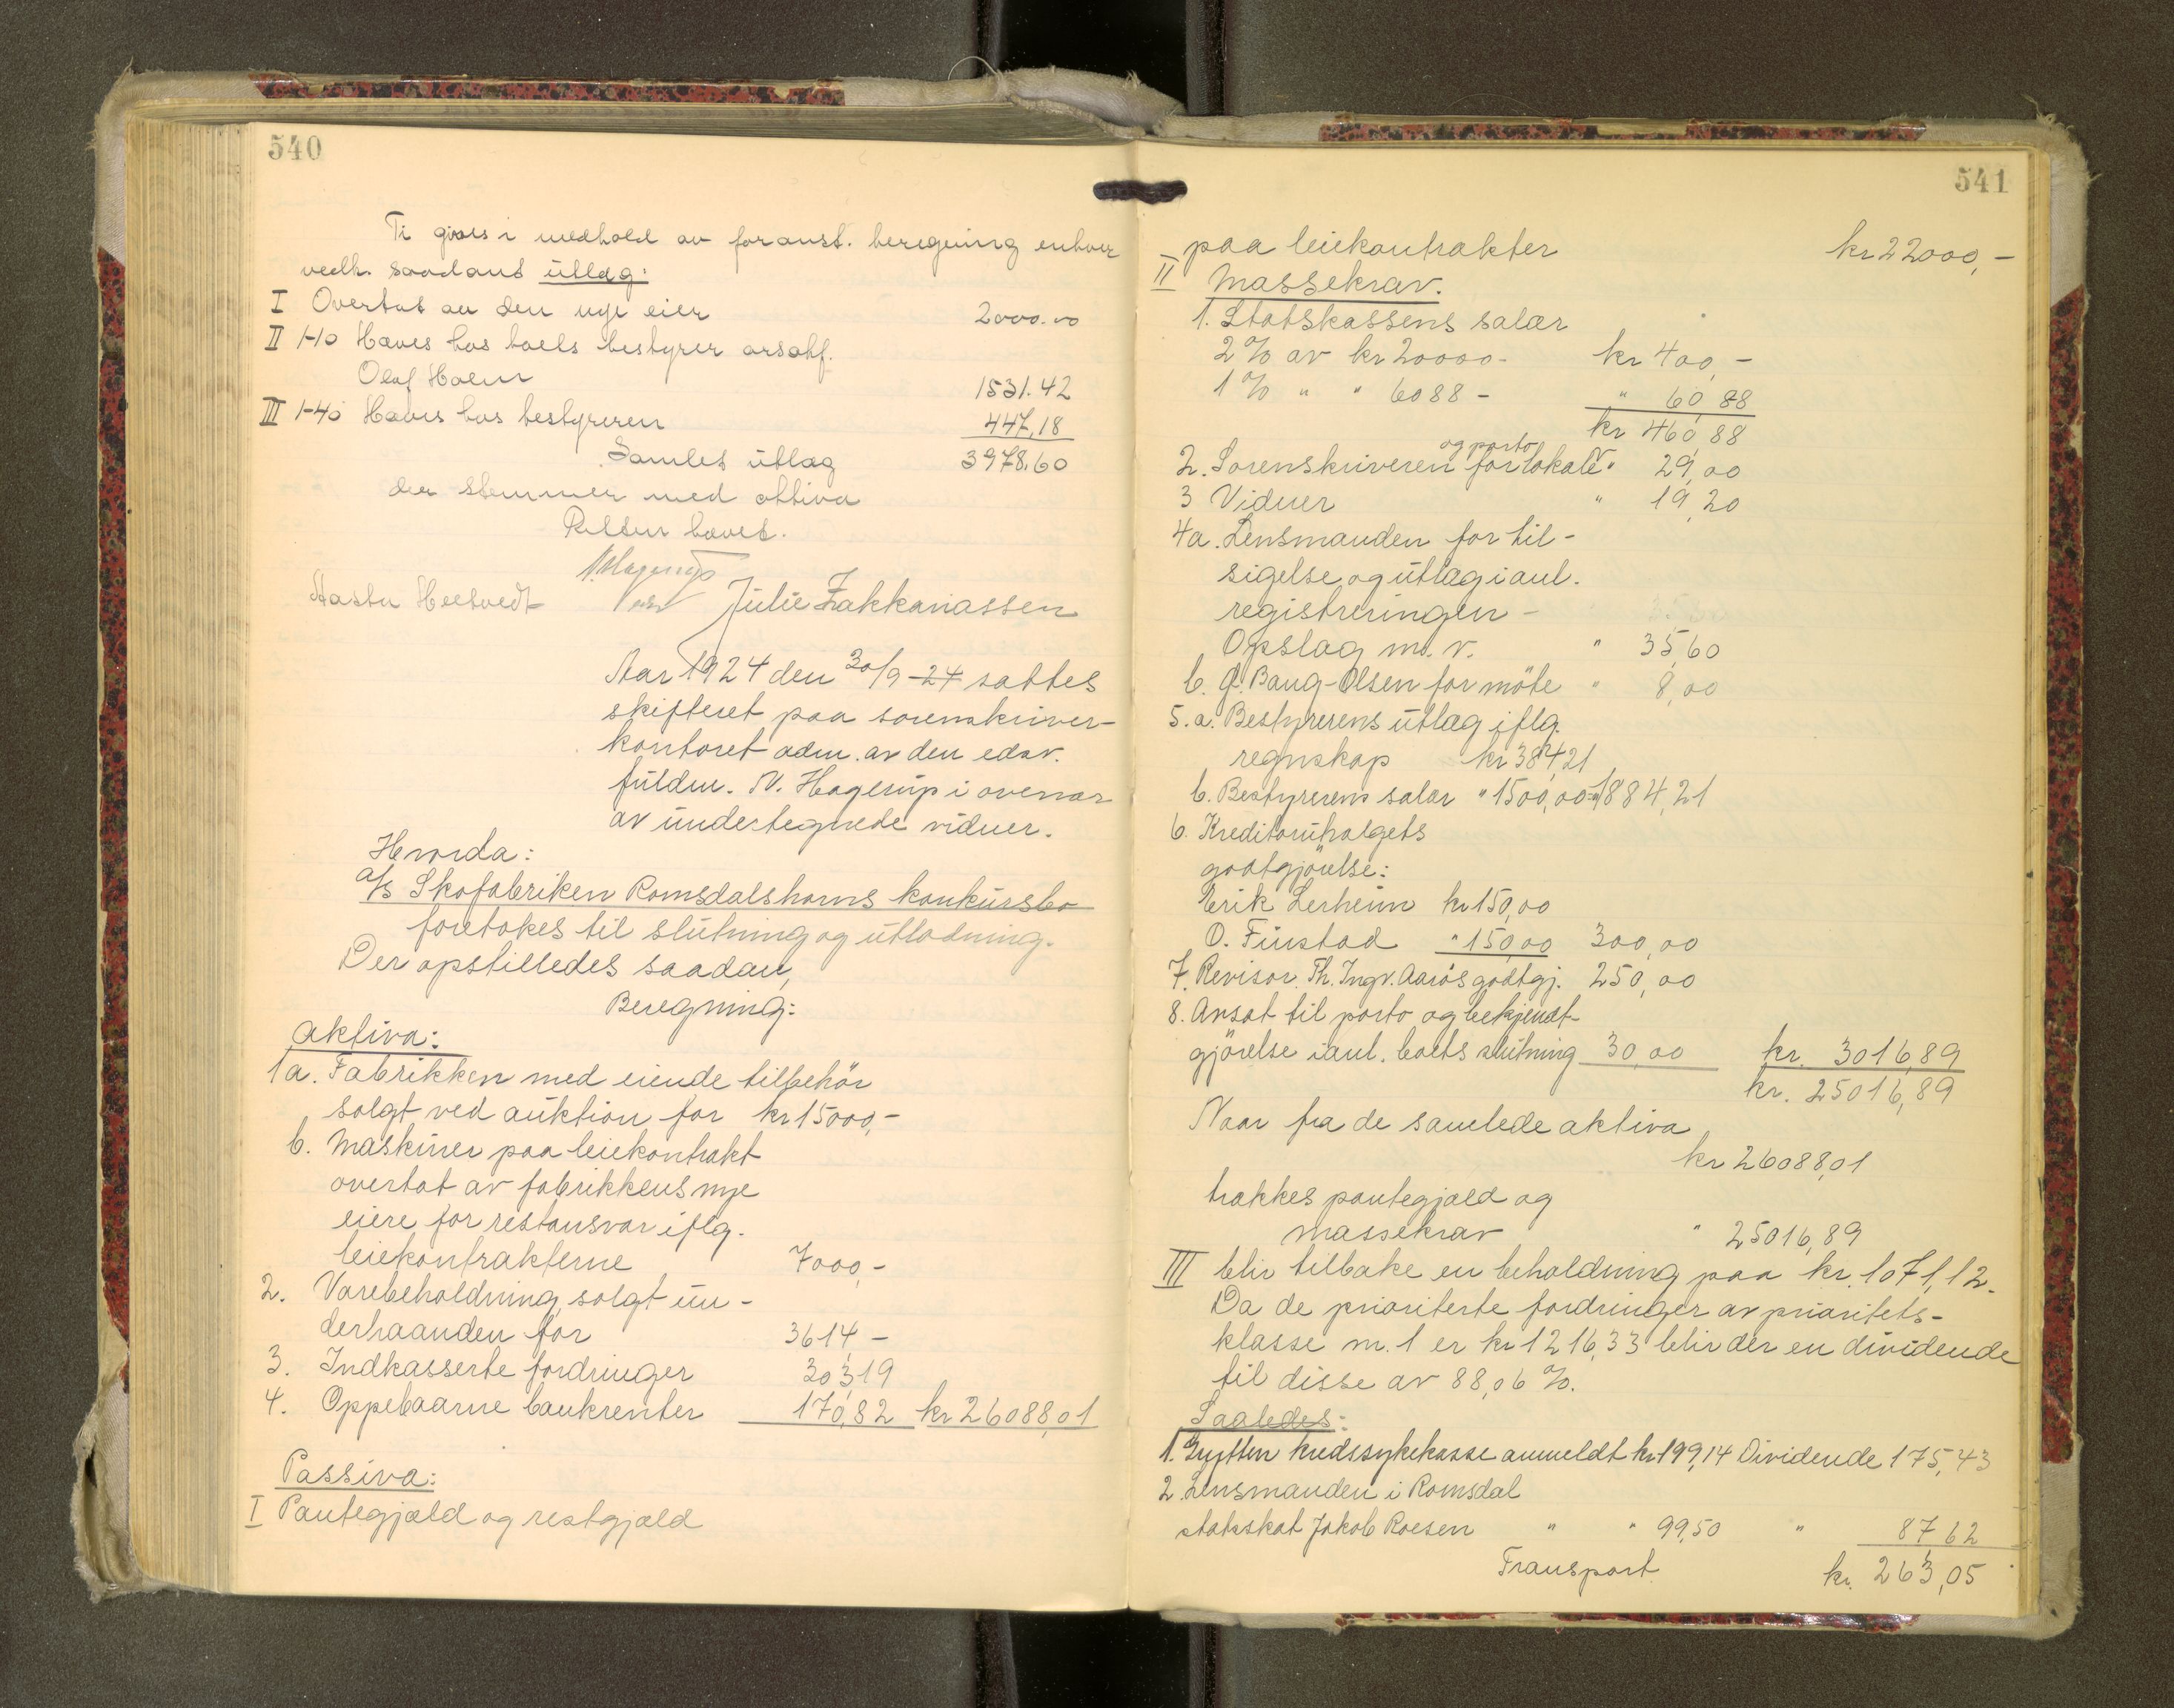 540
Ti gives i medhold av foranst. beregning enhver
vedk. saadant utlæg:
I Overtat av den nye eier 2000.00
II 1-10 Hæves hos boets bestyrer orsakf.
Olaf Holm 1531.42
III 1-40 Hæves hos bestyreren 447,18
Samlet utlæg 3978,60
der stemmer med aktiva
Retten hævet.
N. Hagerup
Aasta Heltvedt Julie Zakkariassen
Aar 1924 den 30/9-24 sattes
skifteret paa sorenskriver-
kontoret adm. av den edsv.
fuldm. N. Hagerup i overvær
av undertegnede vidner.
Hvorda:
A/s Skofabriken Romsdalshorns konkursbo
foretokes til slutning og utlodning.
Der opstilledes saadan,
Beregning:
Aktiva:
1a. Fabrikken med eiende tilbehör
solgt ved auktion for kr 15000,-
b. Maskiner paa leiekontrakt
overtat av fabrikkens nye
eiere for restansvar iflg.
leiekontrakterne 7000,-
2. Varebeholdning, solgt un-
derhaanden for 3614,-
3. Indkasserte fordringer 303,19
4. Oppebaarne bankrenter 170,82 kr 26088,01
Passiva:
I Pantegjæld og restgjæld
541
paa leiekontrakter kr 22000,-
II Massekrav.
1. Statskassens salær
2 % av kr 20000- kr 400,-
1 % " " 6088 - " 60,88
kr 460,88
og porto
2. Sorenskriveren for lokale " 29,00
3 Vidner " 19,20
4a. Lensmanden for til-
sigelse og utlæg i anl.
registreringen -
Opslag m.v. " 35,60
b. G. Baug-Olsen for möte " 8,00
5.a. Bestyrerens utlæg iflg.
regnskap kr 384,21
b. Bestyrerens salær " 1500,00 " 1884,21
6. Kreditorutvalgets
godtgjörelse:
Erik Lerheim kr 150,00
O. Finstad " 150,00 300,00
7. Revisor Th. Ingv. Aarös godtgj. 250,00
8. Ansat til porto og bekjendt-
gjörelse i anl. boets slutning 30,00 kr. 3016,89
kr. 25016,89
Naar fra de samlede aktiva
kr 26088,01
trækkes pantegjæld og
massekrav " 25016,89
III blir tilbake en beholdning paa kr. 1071,12.
Da de prioriterte fordringer av prioritets-
klasse nr. 1 er kr 1216,33 blir der en dividende
til disse av 88,06 %.
Saaledes:
1. Grytten kredssykekasse anmeldt kr 199,14 Dividende 175,43
2. Lensmanden i Romsdal
statsskat Jakob Roesen " " 99,50 " 87,62
Transport kr. 263,05